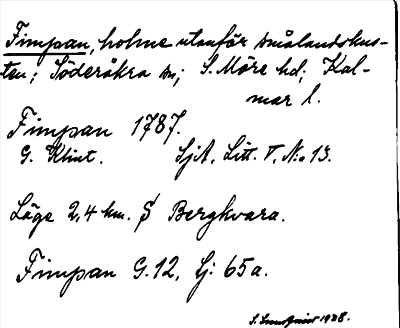 Fimpan, holme utanför smålandskus-
ten; Söderåkra sn; S. Möre hd; Kal-
mar l.
Fimpan 1787.
G. Klint. SjA, Litt. V, N:o 13.
Läge 2,4 km. S Bergkvara.
Fimpan G. 12, lj: 65a.
1928.